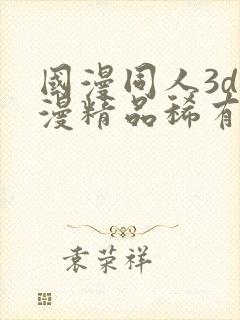 國漫同人3d
漫精品稀有
袁荣祥